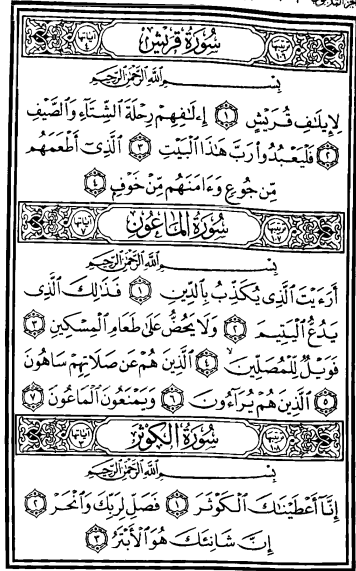 سُورَةُ قُرَيْشٍ
بِسْمِ اللَّهِ الرَّحْمَٰنِ الرَّحِيمِ
لِإِيلَافِ قُرَيْشٍ ١ إِۦلَافِهِمْ رِحْلَةَ الشِّتَاءِ وَالصَّيْفِ
٢ فَلْيَعْبُدُوا رَبَّ هَٰذَا الْبَيْتِ ٣ الَّذِي أَطْعَمَهُم
مِّن جُوعٍ وَءَامَنَهُم مِّنْ خَوْفٍ ٤
سُورَةُ الْمَاعُونِ
بِسْمِ اللَّهِ الرَّحْمَٰنِ الرَّحِيمِ
أَرَءَيْتَ الَّذِي يُكَذِّبُ بِالدِّينِ ١ فَذَٰلِكَ الَّذِي
يَدُعُّ الْيَتِيمَ ٢ وَلَا يَحُضُّ عَلَىٰ طَعَامِ الْمِسْكِينِ ٣
فَوَيْلٌ لِّلْمُصَلِّينَ ٤ الَّذِينَ هُمْ عَن صَلَاتِهِمْ سَاهُونَ
٥ الَّذِينَ هُمْ يُرَاءُونَ ٦ وَيَمْنَعُونَ الْمَاعُونَ ٧
سُورَةُ الْكَوْثَرِ
بِسْمِ اللَّهِ الرَّحْمَٰنِ الرَّحِيمِ
إِنَّا أَعْطَيْنَاكَ الْكَوْثَرَ ١ فَصَلِّ لِرَبِّكَ وَانْحَرْ ٢
إِنَّ شَانِئَكَ هُوَ الْأَبْتَرُ ٣